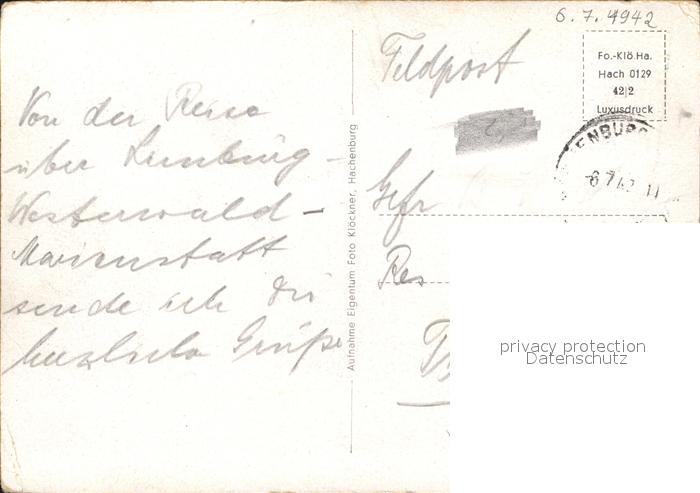 6. 7. 1942
Fo.-Klö.Ha.
Hach 0129
42|2
Luxusdruck
ENBURG
-6.7.42.11
Feldpost
Von der Reise
über Limburg -
Westerwald -
Marienstatt
sende ich Dir
herzliche Grüße
Aufnahme Eigentum Foto Klöckner, Hachenburg
Gefr
Res
privacy protection
Datenschutz